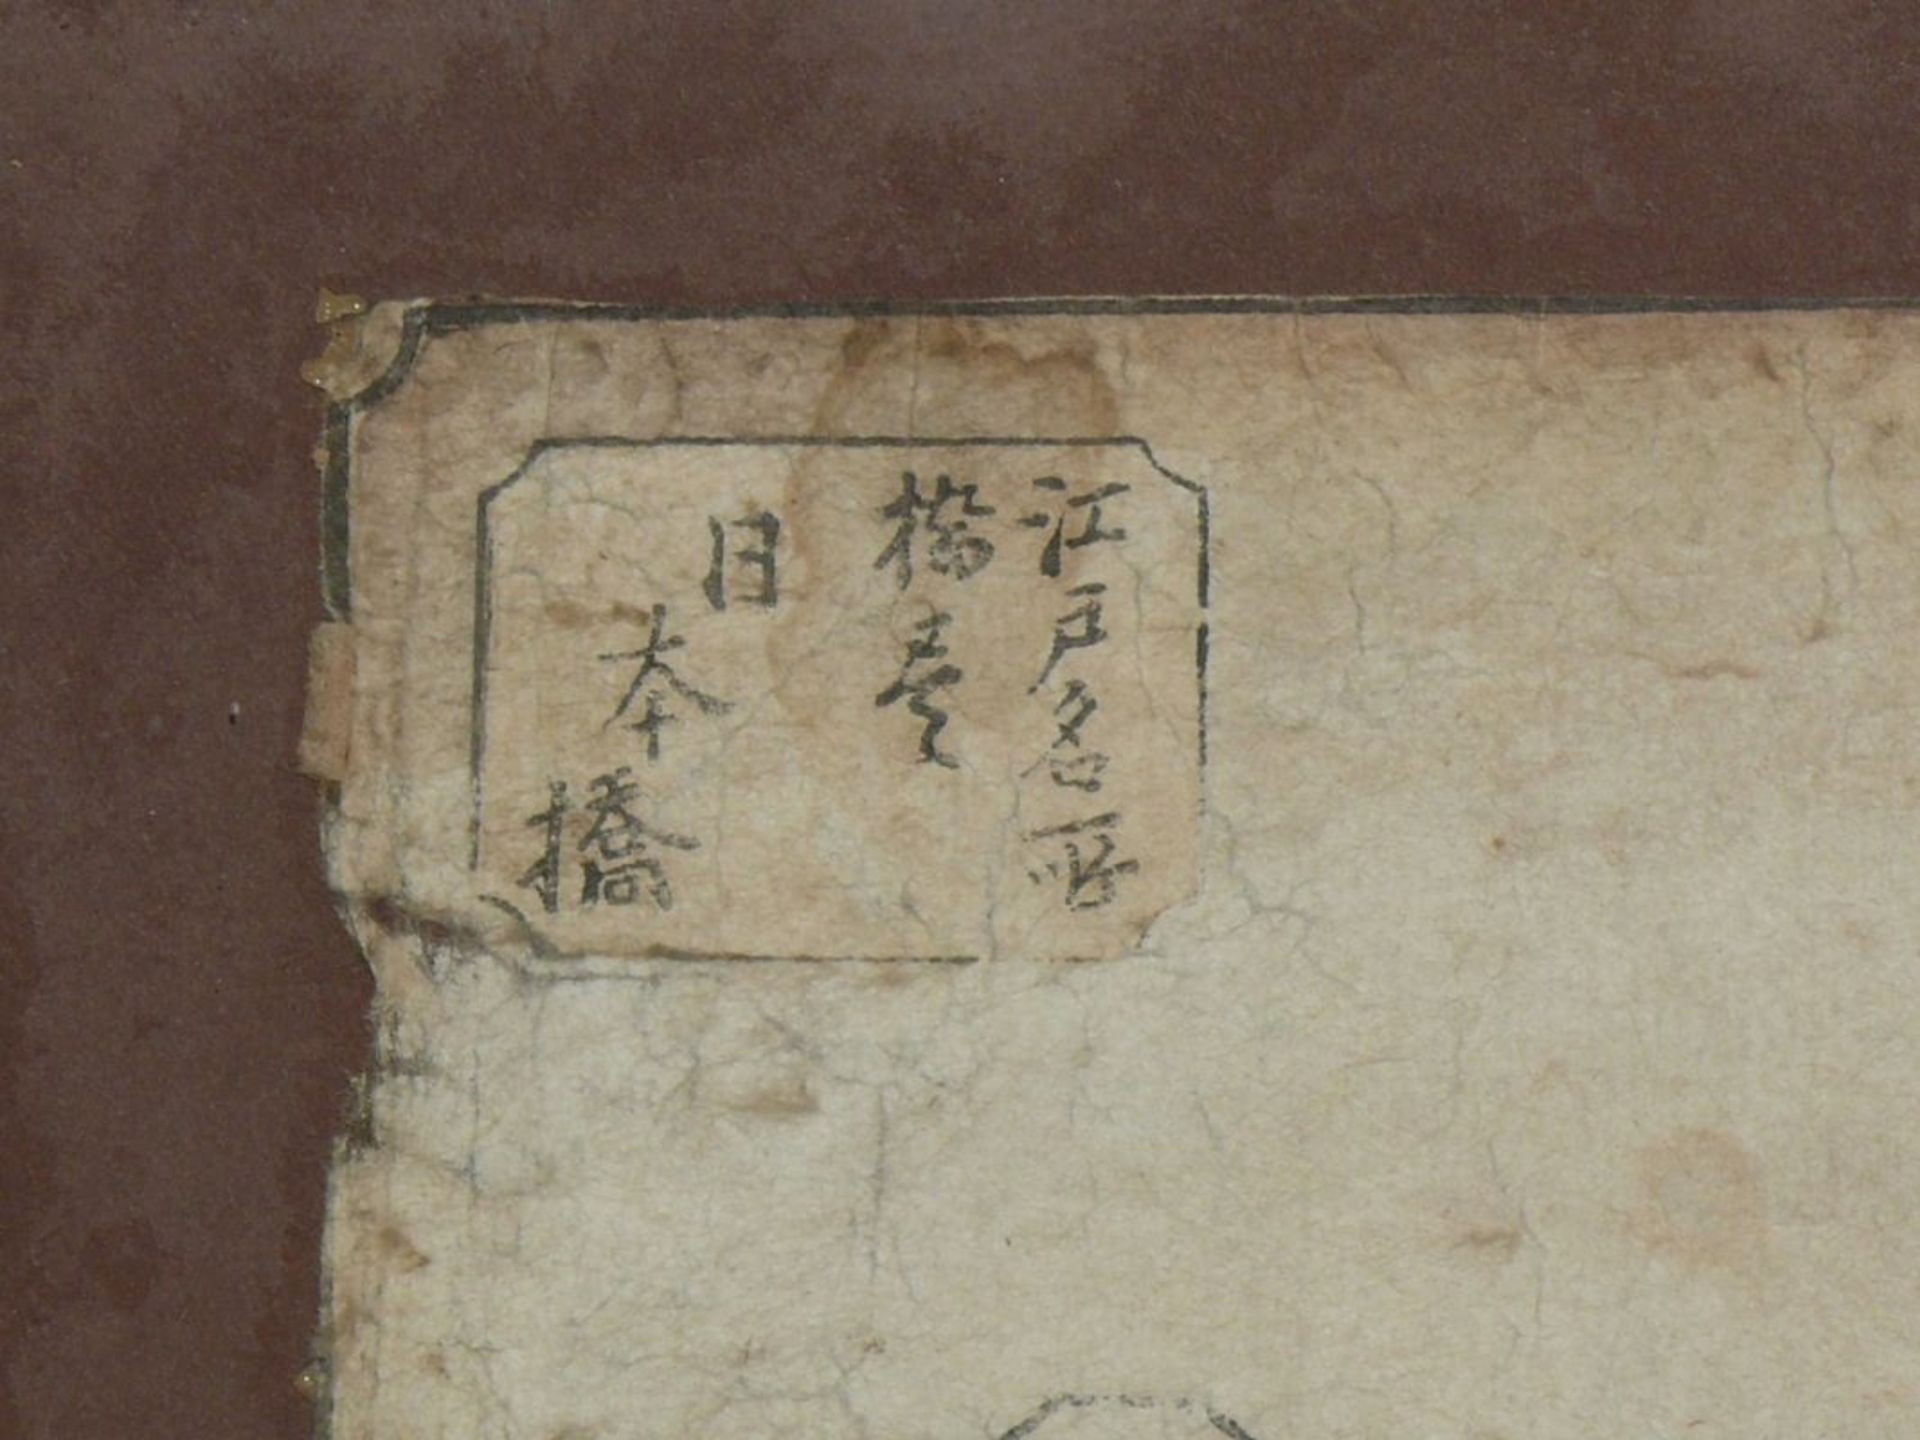 江戸名所
橋尽
日本橋